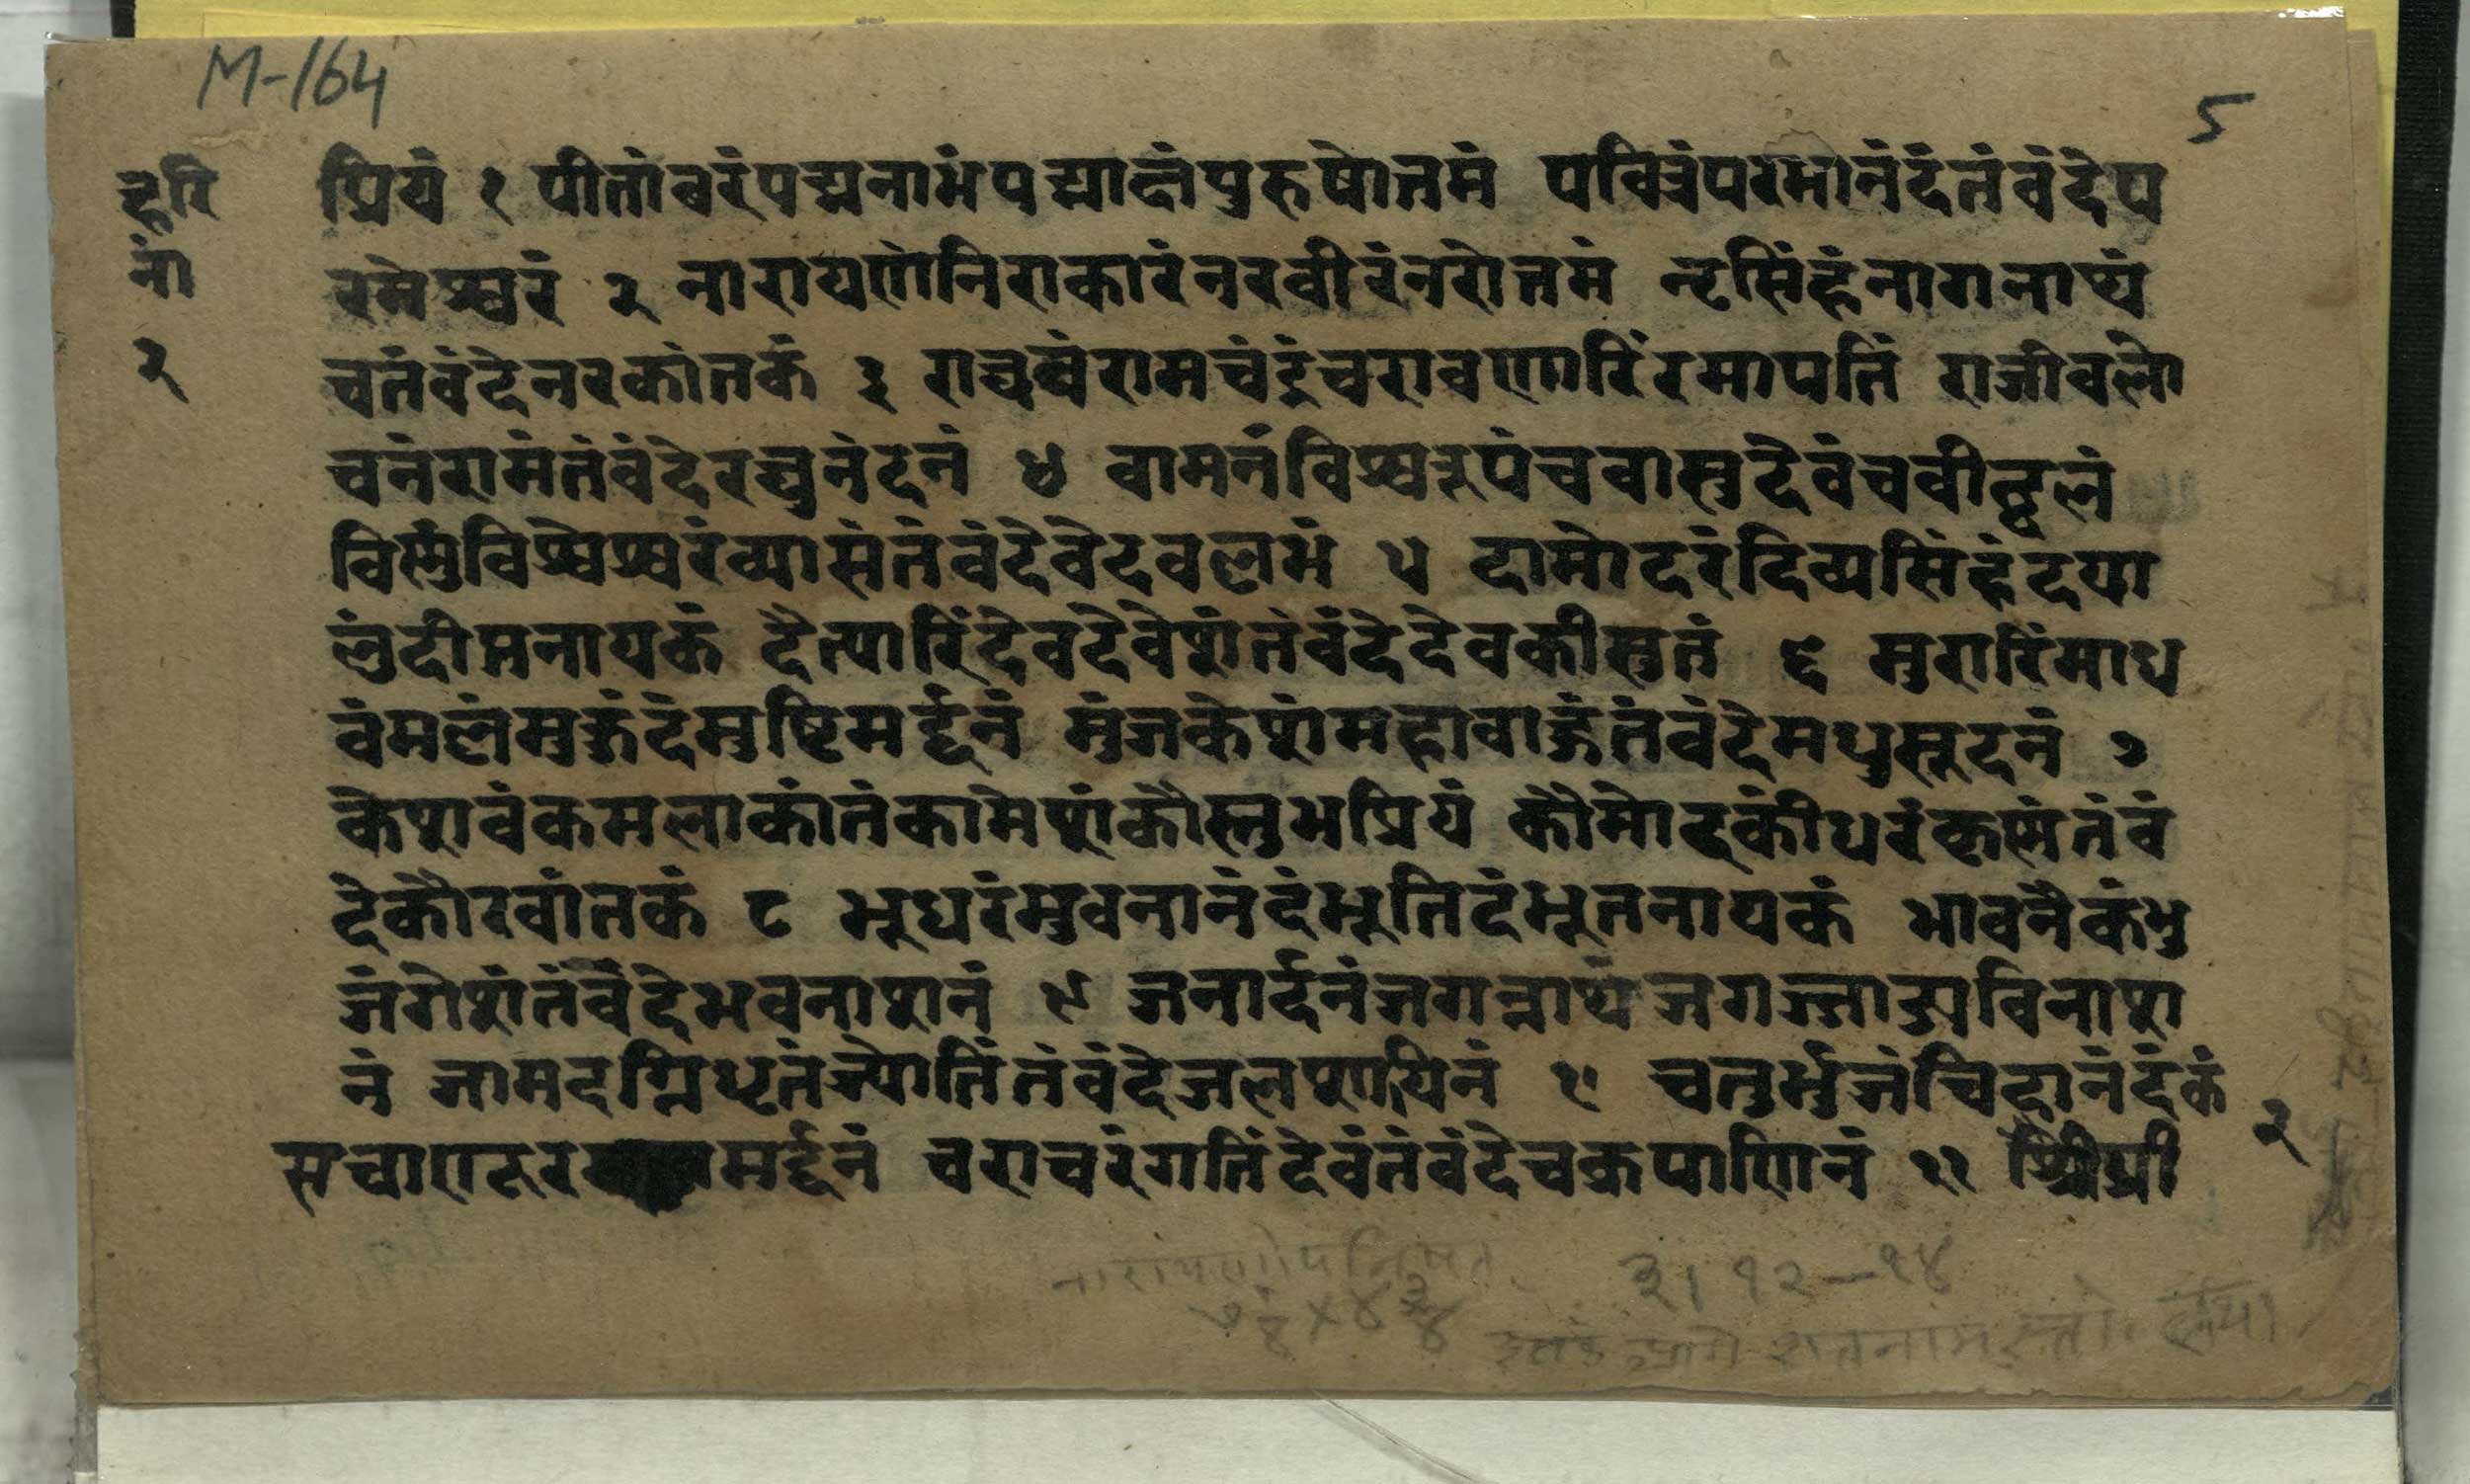 M-164
५
हरि
ना
२
प्रियं १ पीतांबरंपद्मनाभंपद्माक्षंपुरुषोत्तमं पवित्रंपरमानंदंतंवंदेप
रमेश्वरं २ नारायणंनिराकारंनरवीरंनरोत्तमं नृसिंहंनागनाथं
चतंवंदेनरकांतकं ३ राघवंरामचंद्रंचरावणारिंरमापतिं राजीवलो
चनंरामंतंवंदेरघुनंदनं ४ वामनंविश्वरूपंचवासुदेवंचवीठ्ठलं
विष्णुंविश्वेश्वरंव्यासंतंवंदेवेदवल्लभं ५ दामोदरंदिव्यसिंहंदया
लुंदीप्तनायकं दैत्यारिंदेवदेवेशंतंवंदेदेवकीसुतं ६ मुरारिंमाध
वंमल्लंमुकुंदंमुष्टिमर्द्दनं मुंजकेशंमहाबाहुंतंवंदेमधुसूदनं ७
केशवंकमलाकांतंकामेशंकौस्तुभप्रियं कौमोदकीधरंकृष्णंतंवं
देकौरवांतकं ८ भूधरंभुवनानंदंभूतिदंभूतनायकं भावनैकंभु
जंगेशंतंवंदेभवनाशनं ९ जनार्दनंजगन्नाथंजगज्जाड्यविनाश
नं जामदग्निधृतंज्योतिंतंवंदेजलशायिनं १० चतुर्भुजंचिदानंदंकं २
सचाणूर मर्द्दनं चराचरंगतिंदेवंतंवंदेचक्रपाणिनं ११ श्रियैश्री
नारायणोपनिषत् ३। १२-१४
७ १/२ × ४ ३/४
शतनाम स्तो.